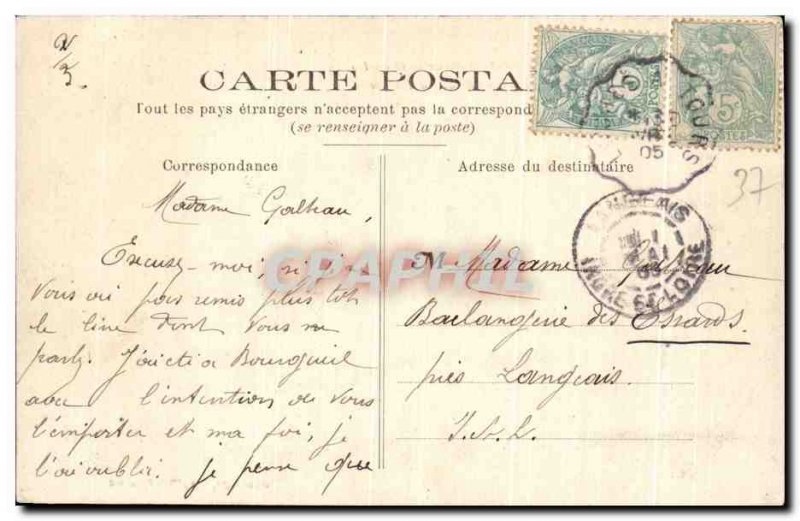 CARTE POSTA
Tout les pays étrangers n'acceptent pas la correspond
(se renseigner à la poste)
Correspondance
Adresse du destinataire
37
TOURS
05
5
5
LANGEAIS
INDRE ET LOIRE
CPARHIL
Madame
Excusez-moi, si je ne
Vous ai pas remis plus tôt
le livre dont vous me
parlez. J'étais à Bourgueil
avec l'intention de vous
l'emporter et ma foi, je
l'ai oublié. je pense que
M Madame
Boulangerie des Essards.
près Langeais.
I.&L.